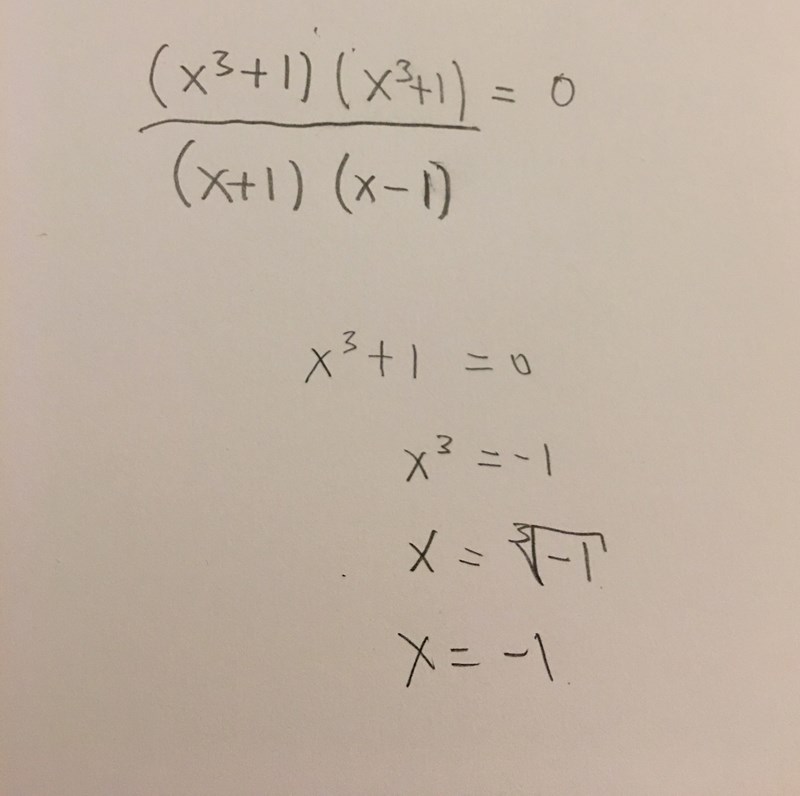 (x³+1) (x³+1) = 0
(x+1) (x-1)
x³+1 = 0
x³ = -1
x = ∛-1
x = -1